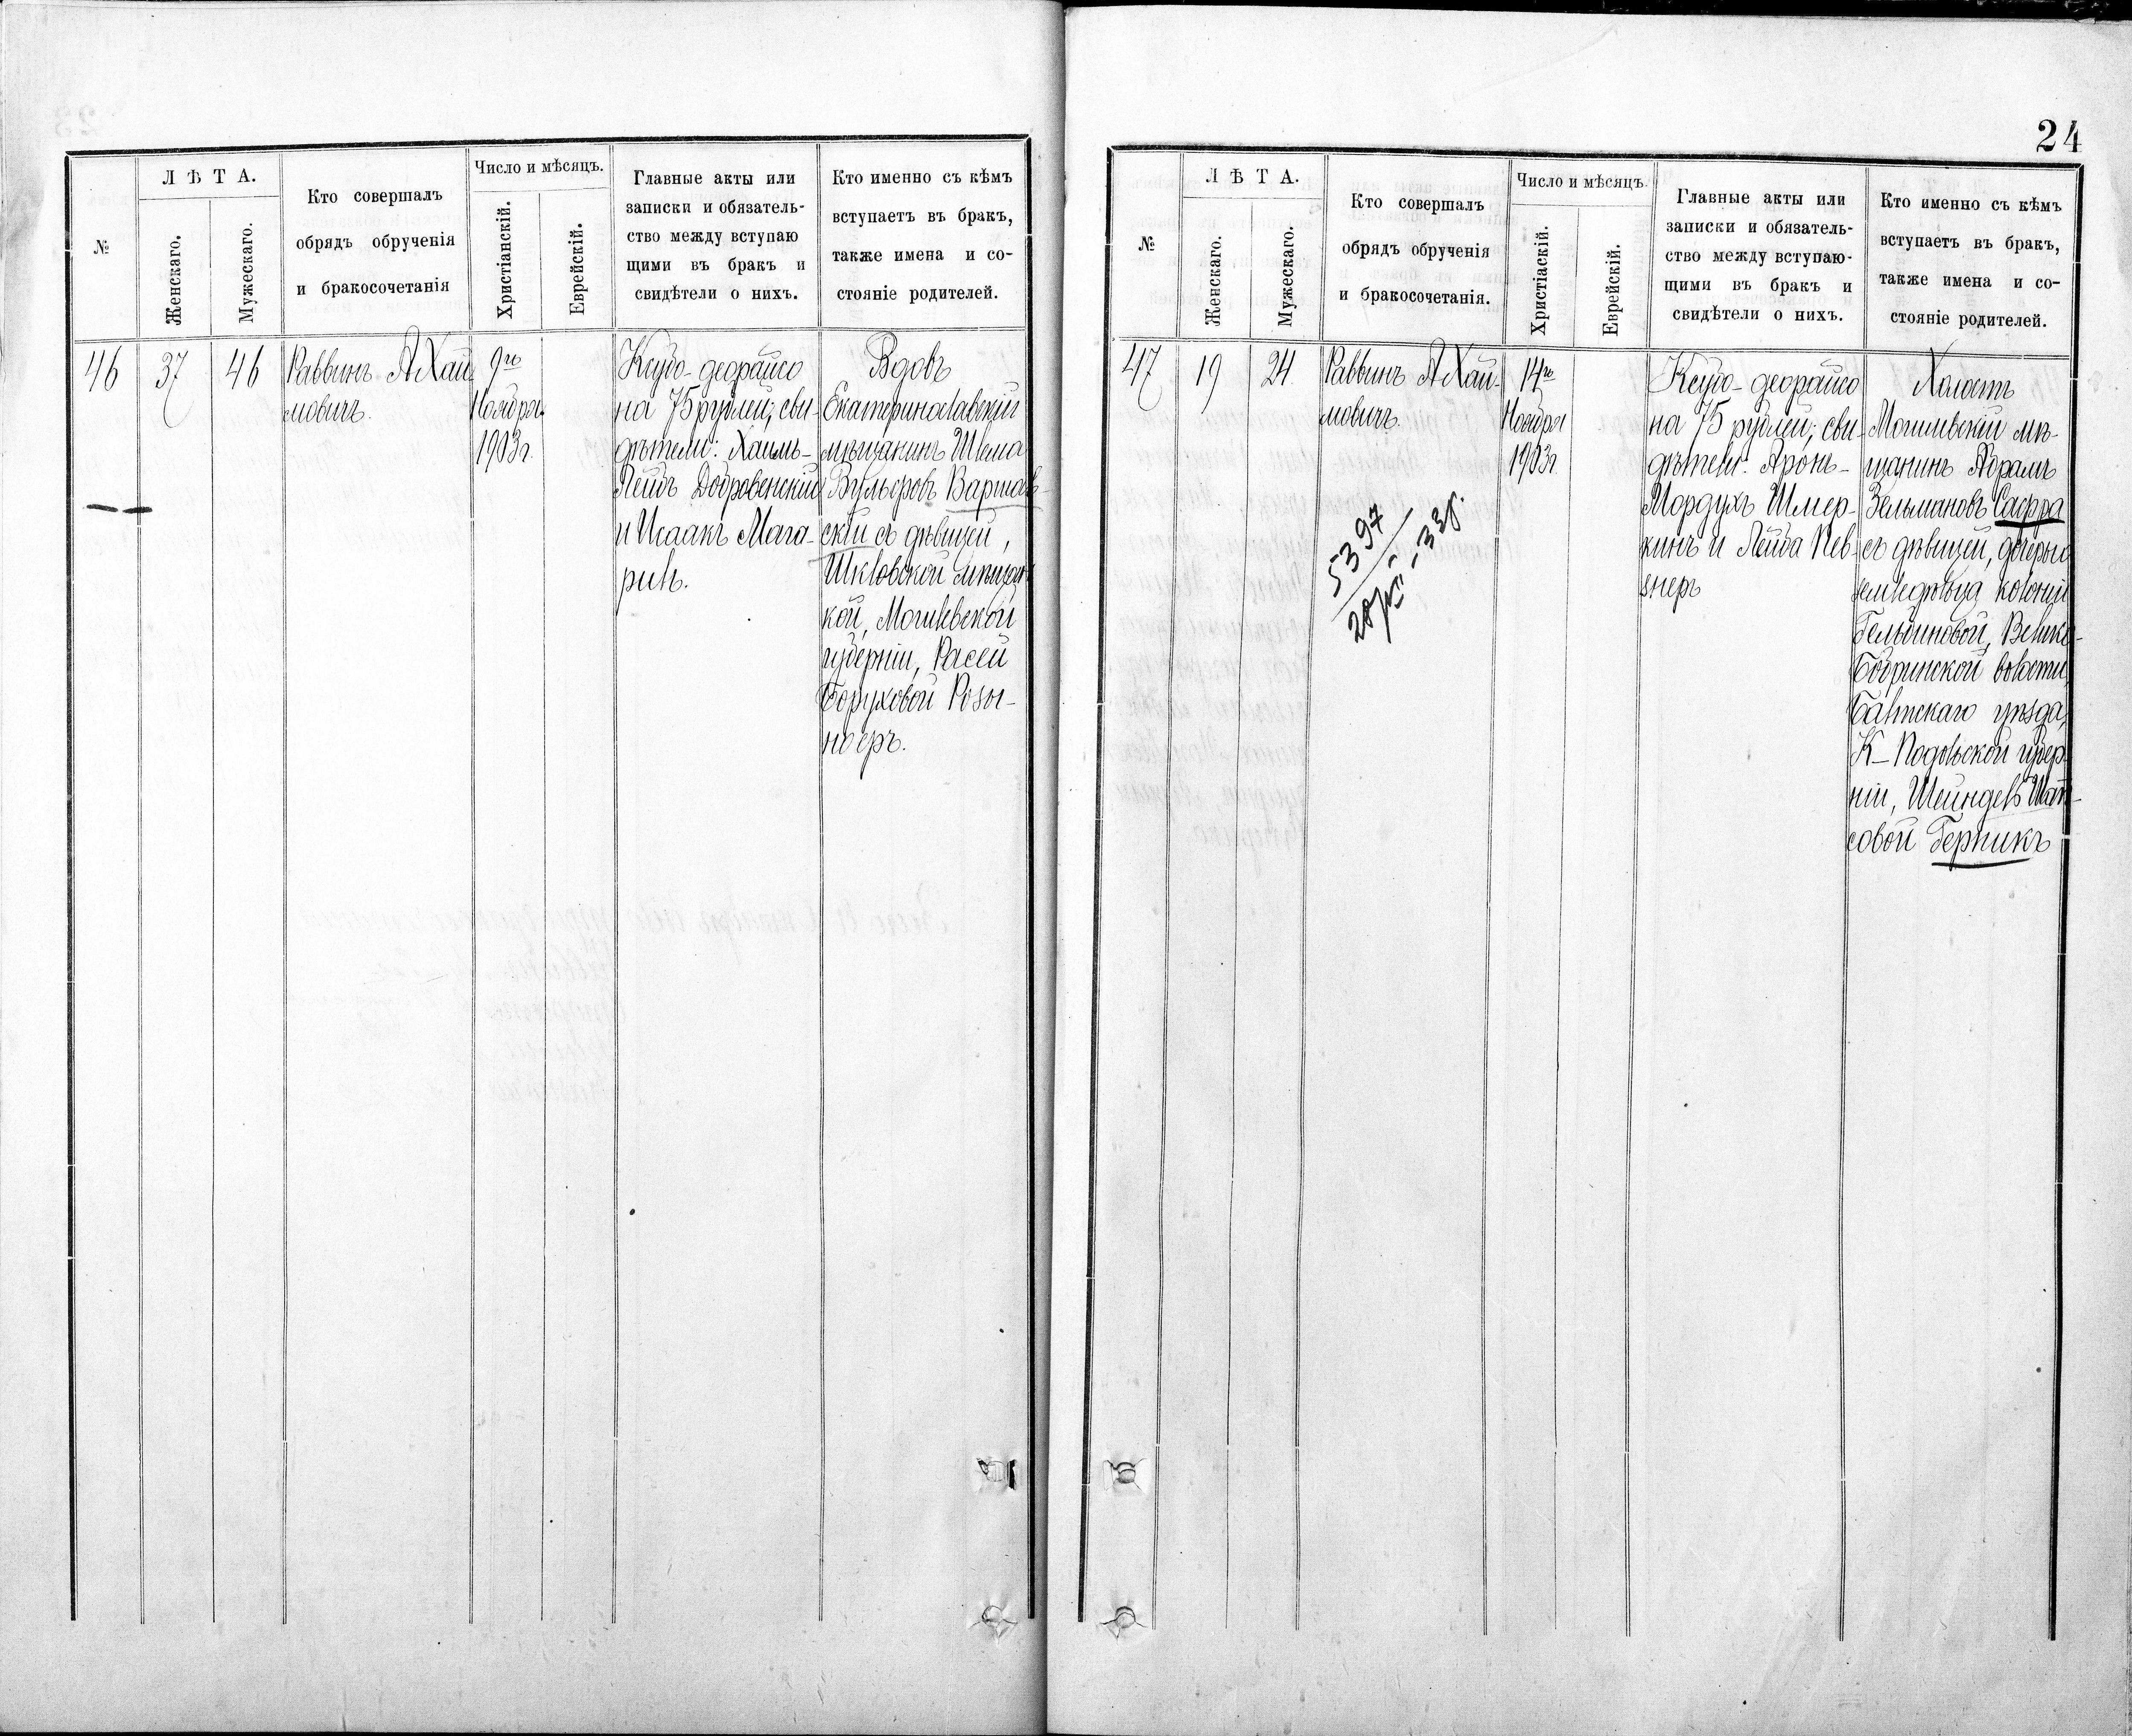 №
ЛѢТА.
Женскаго.
Мужескаго.
Кто совершалъ
обрядъ обрученія
и бракосочетанія
Число и мѣсяцъ.
Христіанскій.
Еврейскій.
Главные акты или
записки и обязатель-
ство между вступаю
щими въ бракъ и
свидѣтели о нихъ.
Кто именно съ кѣмъ
вступаетъ въ бракъ,
также имена и со-
стояніе родителей.
46
37
46
Раввинъ А Хай
мовичъ.
9го
Ноября
1903г.
Ксубо-деорайсо
на 75 рублей; сви-
дѣтели: Хаимъ-
Лейбъ Добровенскій
и Исаакъ Мага-
рилъ.
Вдовъ
Екатеринославскій
мѣщанинъ Шема
Вульфовъ Варшав-
скій съ дѣвицей,
Шкловской мѣщан
кой, Могилевской
губерніи, Расей
Боруховой Розы-
ноеръ.
24
№
ЛѢТА.
Женскаго.
Мужескаго.
Кто совершалъ
обрядъ обрученія
и бракосочетанія.
Число и мѣсяцъ.
Христіаскій.
Еврейскій.
Главные акты или
записки и обязатель-
ство между вступаю-
щими въ бракъ и
свидѣтели о нихъ.
Кто именно съ кѣмъ
вступаетъ въ бракъ,
также имена и со-
стояніе родителей.
47
19
24.
Раввинъ А Хай-
мовичъ.
5397
14го
Ноября
1903г.
Ксубо-деорайсо
на 75 рублей; сви-
дѣтели: Аронъ-
Мордухъ Шмер-
кинъ и Лейба Пев-
знеръ
Холостъ
Могилевскій мѣ-
щанинъ Абрамъ
Зельмановъ Сафра
съ дѣвицей, дочерью
земледѣльца колоніи
Гельбиновой, Велико-
Бобринской волости,
Балтскаго уѣзда,
К-Подольской губер
ніи, Шейндель Шап-
совой Герникъ